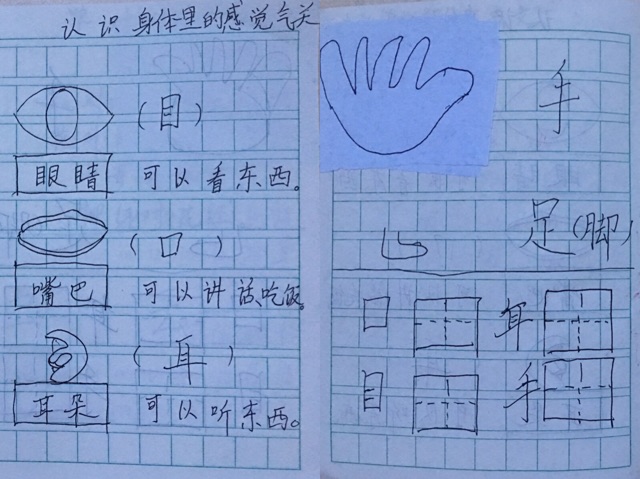 认识身体里的感觉气关
(目)
眼睛 可以看东西。
(口)
嘴巴 可以讲话吃饭。
(耳)
耳朵 可以听东西。
手
足(脚)
口 耳
目 手